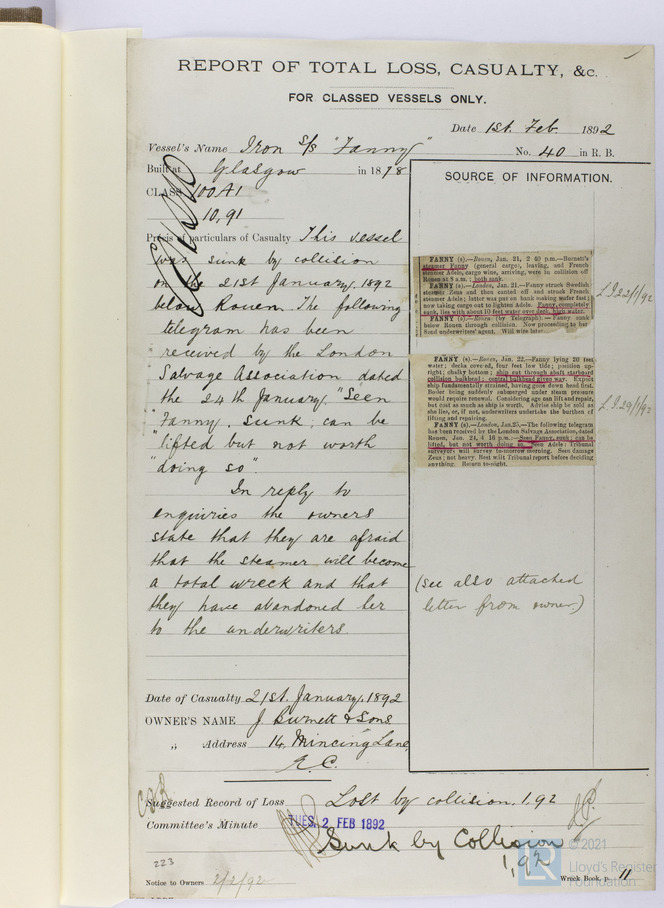 REPORT OF TOTAL LOSS, CASUALTY, &c.
FOR CLASSED VESSELS ONLY.
Date 1st. Feb. 1892
Vessel's Name Iron S/S "Fanny"
No. 40 in R. B.
Built at Glasgow in 1878
CLASS 100A1
10,91
Précis of particulars of Casualty This vessel
was sunk by collision
on the 21st January, 1892
below Rouen. The following
telegram has been
received by the London
Salvage Association dated
the 24th January. "Seen
"Fanny, sunk; can be
"lifted but not worth
"doing so".
In reply to
enquiries the owners
state that they are afraid
that the steamer will become
a total wreck and that
they have abandoned her
to the underwriters.
Date of Casualty 21st. January, 1892
OWNER'S NAME J Burnett & Sons
„ Address 14, Mincing Lane
E.C.
SOURCE OF INFORMATION.
FANNY (s).—Rouen, Jan. 21, 2 40 p.m.—Burnett's
steamer Fanny (general cargo), leaving, and French
steamer Adele, cargo wine, arriving, were in collision off
Rouen at 8 a.m.; both sunk.
FANNY (s).—London, Jan. 21.—Fanny struck Swedish
steamer Zeus and then canted off and struck French
steamer Adele; latter was put on bank making water fast;
now taking cargo out to lighten Adele. Fanny completely
sunk, lies with about 10 feet water over deck, high water.
FANNY (s).—Rouen (by Telegraph).—Fanny sunk
below Rouen through collision. Now proceeding to her
Send underwriters' agent. Will wire later.
L.I. 22/1/92
FANNY (s).—Rouen, Jan. 22.—Fanny lying 20 feet
water; decks covered, four feet low tide; position up-
right; chalky bottom; ship cut through abaft starboard
collision bulkhead; central bulkhead given way. Expect
ship fundamentally strained, having gone down head first.
Boiler being suddenly submerged under steam pressure
would require renewal. Considering age can lift and repair,
but cost as much as ship is worth. Advise ship be sold as
she lies, or, if not, underwriters undertake the burthen of
lifting and repairing.
FANNY (s).—London, Jan. 25.—The following telegram
has been received by the London Salvage Association, dated
Rouen, Jan. 24, 4 10 p.m.:—Seen Fanny, sunk; can be
lifted, but not worth doing so. Seen Adele; Tribunal
surveyors will survey to-morrow morning. Seen damage
Zeus; not heavy. Best wait Tribunal report before deciding
anything. Return to-night.
(see also attached
letter from owner)
Suggested Record of Loss Lost by collision. 1,92
Committee's Minute TUES. 2 FEB 1892
Sunk by Collision
1,92
223
Notice to Owners 2/2/92
Wreck Book, p. 11
© 2021
LR
Lloyd's Register
Foundation